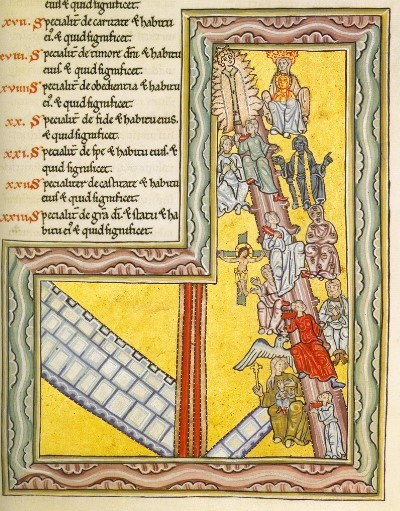 eiuſ ⁊ quid ſignificet.
xvii. Specialit̄ de caritate ⁊ habitu
ei᷒. ⁊ quid ſignificet.
xviii. Specialit̄ de timore dn̄i ⁊ habitu
eiuſ. ⁊ quid ſignificet.
xviiii. Specialit̄ de obedientia ⁊ habitu
ei᷒. ⁊ quid ſignificet.
xx. Specialit̄ de fide ⁊ habitu eiuſ.
⁊ quid ſignificet.
xxi. Specialit̄ de ſpe ⁊ habitu eiuſ. ⁊
quid ſignificet.
xxii. Specialiter de caſtitate ⁊ habitu
eiuſ ⁊ quid ſignificet.
xxiii. Specialit̄ de gr̄a dī. ⁊ ſtatu ⁊ ha
bitu ei᷒ ⁊ quid ſignificet.